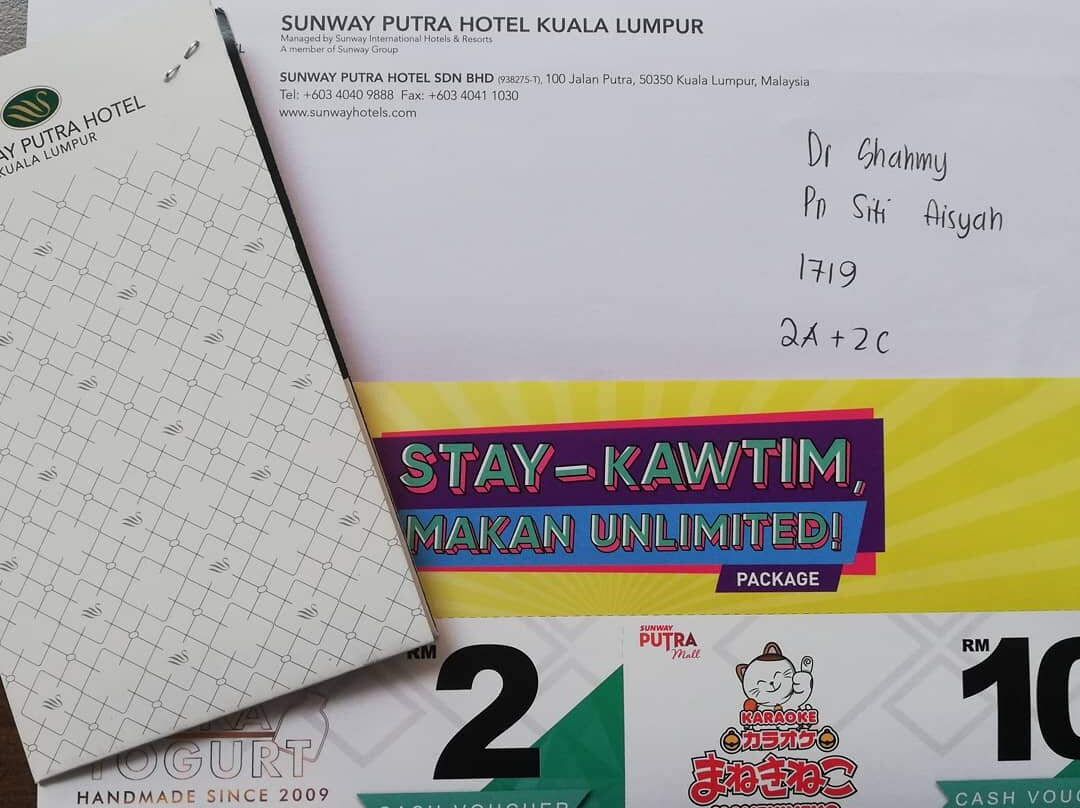 SUNWAY PUTRA HOTEL KUALA LUMPUR
Managed by Sunway International Hotels & Resorts
A member of Sunway Group
SUNWAY PUTRA HOTEL SDN BHD (938275-T), 100 Jalan Putra, 50350 Kuala Lumpur, Malaysia
Tel: +603 4040 9888 Fax: +603 4041 1030
www.sunwayhotels.com
AY PUTRA HOTEL
KUALA LUMPUR
Dr Shahmy
Pn Siti Aisyah
1719
2A + 2C
STAY-KAWTIM,
MAKAN UNLIMITED!
PACKAGE
RM 2
YOGURT
HANDMADE SINCE 2009
CASH VOUCHER
SUNWAY
PUTRA
Mall
KARAOKE
カラオケ
まねきねこ
RM 10
CASH VOUC